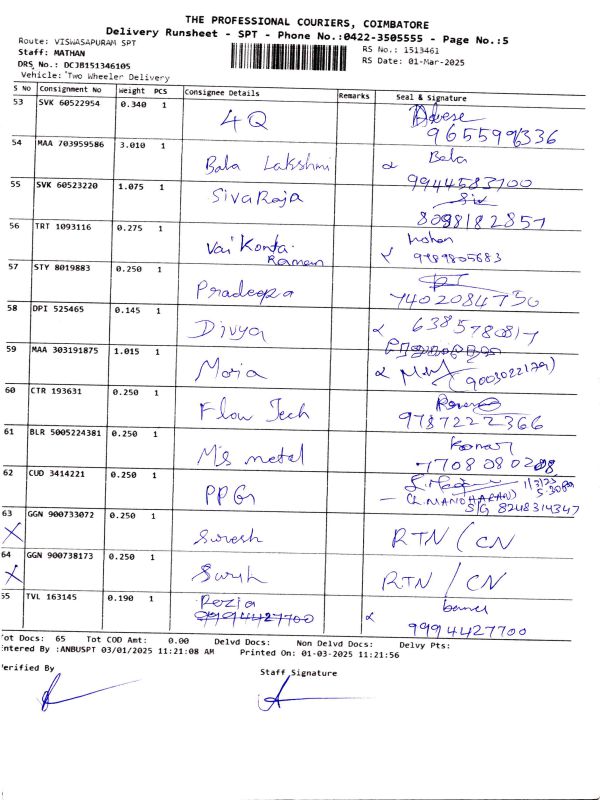 THE PROFESSIONAL COURIERS, COIMBATORE
Delivery Runsheet - SPT - Phone No.:0422-3505555 - Page No.:5
Route: VISWASAPURAM SPT
Staff: MATHAN
DRS No.: DCJB151346105
Vehicle: Two Wheeler Delivery
RS No.: 1513461
RS Date: 01-Mar-2025
S No Consignment No Weight PCS Consignee Details Remarks Seal & Signature
53 SVK 60522954 0.340 1 4Q
54 MAA 703959586 3.010 1 Bala Lakshmi Bala
9944583700
55 SVK 60523220 1.075 1 SivaRaja Siv
8098182857
56 TRT 1093116 0.275 1 Mohan
Raman 9789805683
57 STY 8019883 0.250 1 Pradeepa
7402084750
58 DPI 525465 0.145 1 Divya 6385780817
59 MAA 303191875 1.015 1 (9003022179)
60 CTR 193631 0.250 1 Flow Tech
9787222366
61 BLR 5005224381 0.250 1 M/s metal
62 CUD 3414221 0.250 1 PPG 1/3/25
(L.MANOHARAN)
S/G 8248314347
63 GGN 900733072 0.250 1 Suresh RTN / CN
64 GGN 900738173 0.250 1 RTN / CN
65 TVL 163145 0.190 1 Rezia
9994427700 9994427700
Tot Docs: 65 Tot COD Amt: 0.00 Delvd Docs: Non Delvd Docs: Delvy Pts:
Entered By :ANBUSPT 03/01/2025 11:21:08 AM Printed On: 01-03-2025 11:21:56
Verified By Staff Signature